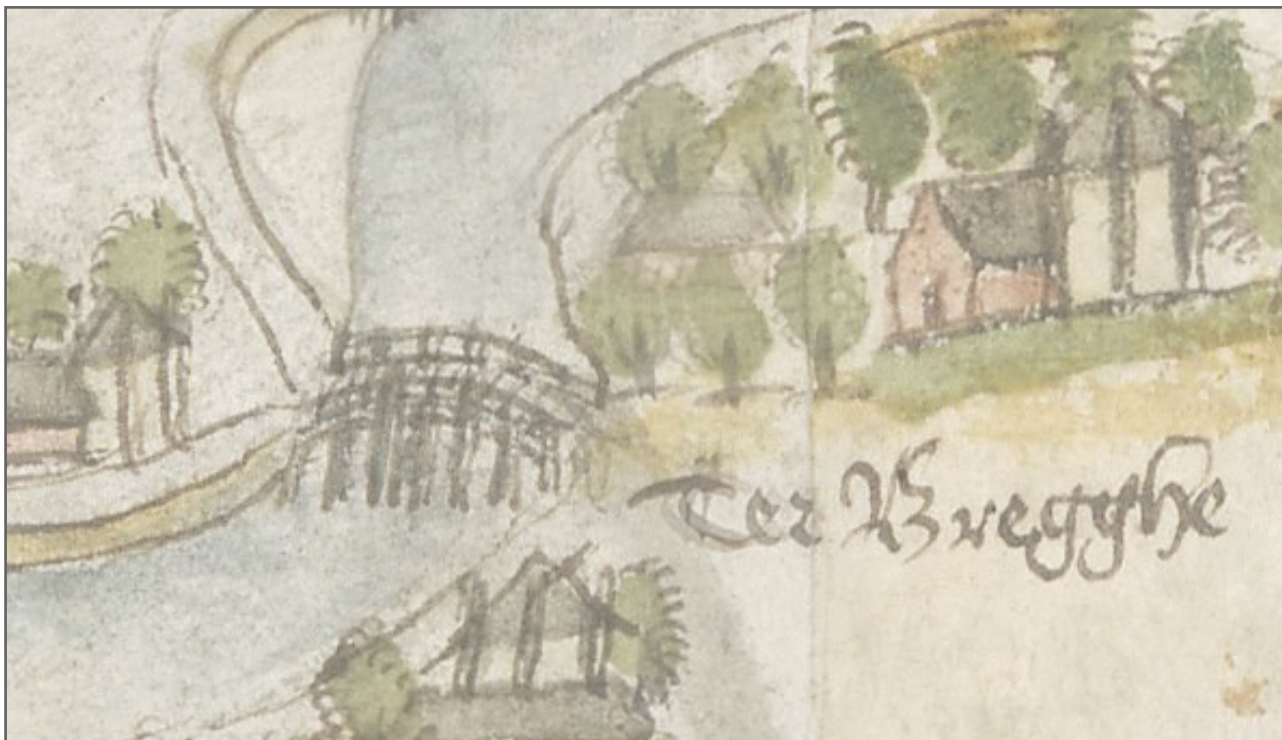 Ter Bregghe